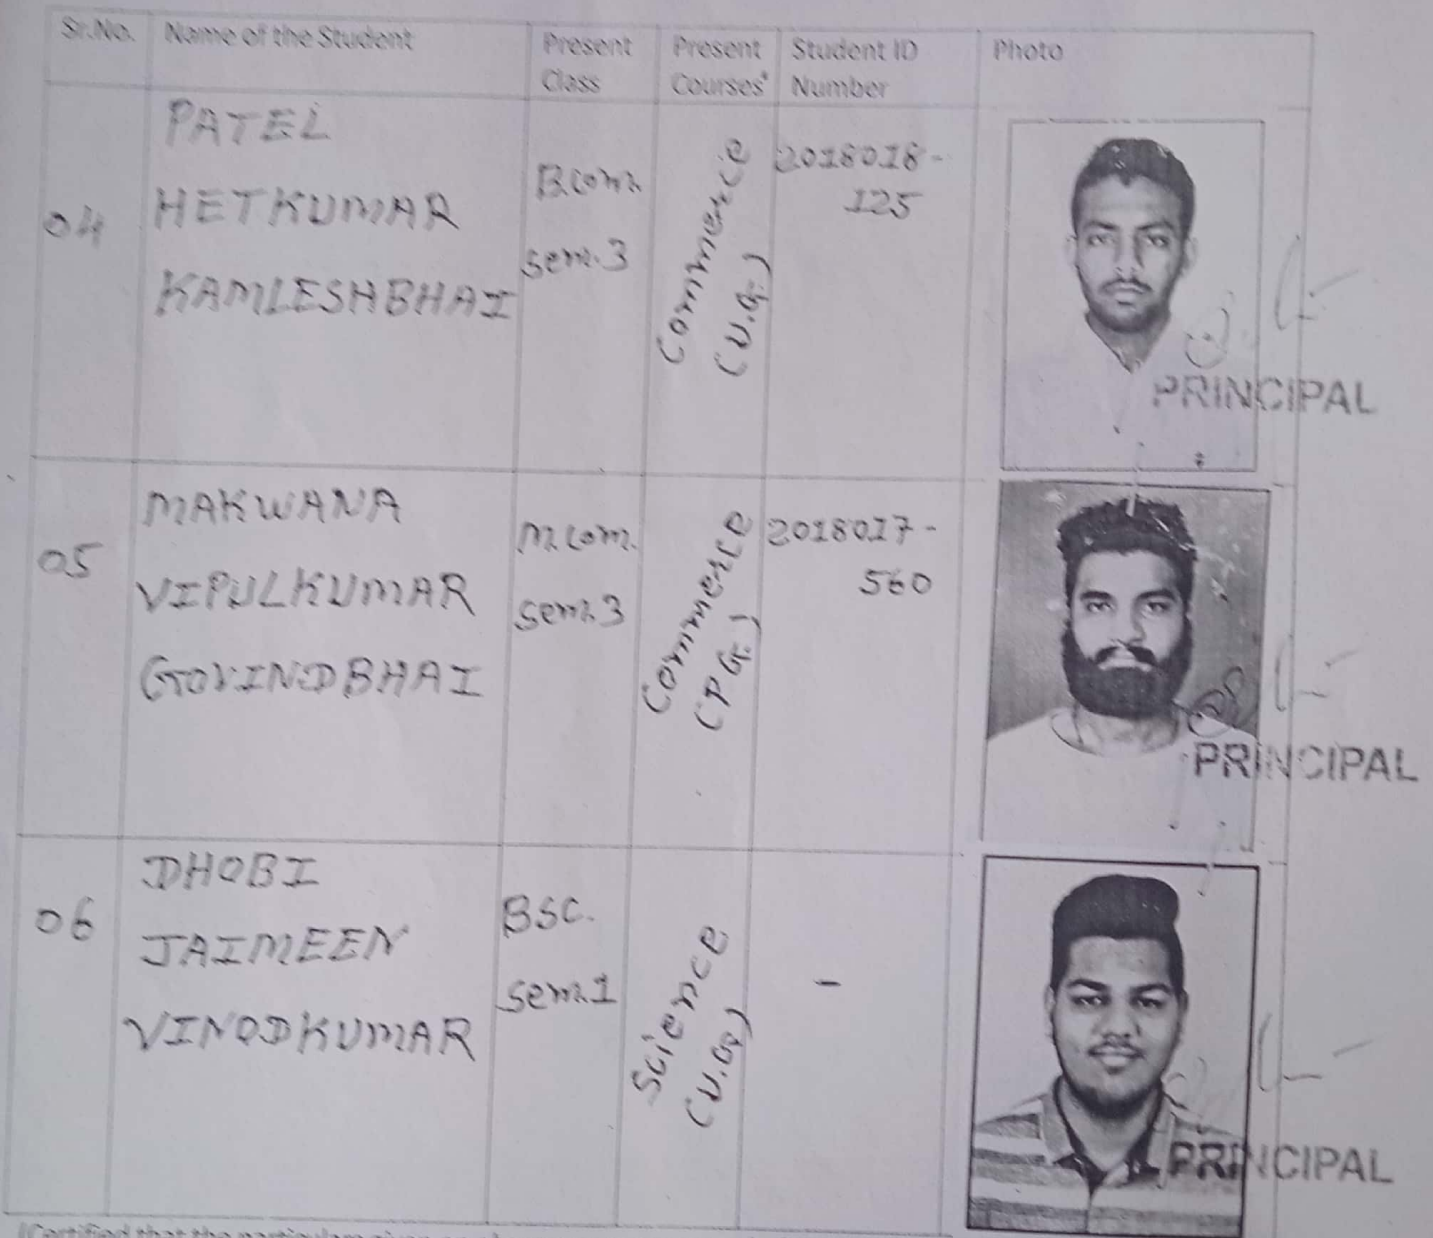 Sr.No. Name of the Student Present Class Present Courses* Student ID Number Photo
04
PATEL
HETKUMAR
KAMLESHBHAI
B.com.
sem.3
Commerce
(U.G.)
2018018-
125
PRINCIPAL
05
MAKWANA
VIPULKUMAR
GOVINDBHAI
M.com.
sem.3
Commerce
(P.G.)
2018017-
560
PRINCIPAL
06
DHOBI
JAIMEEN
VINODKUMAR
BSC.
sem.1
Science
(U.G)
-
PRINCIPAL